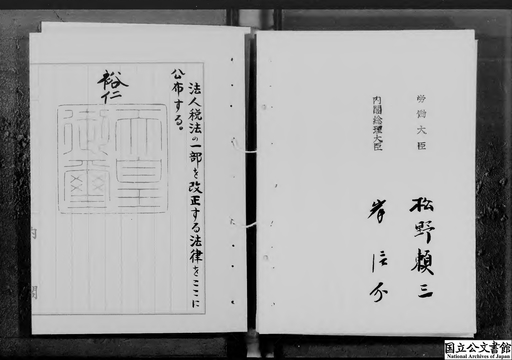 労働大臣 松野頼三
内閣総理大臣 岸信介
法人税法の一部を改正する法律をここに
公布する。
裕仁
天皇
御璽
内閣
国立公文書館
National Archives of Japan